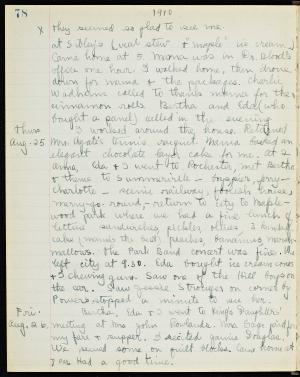 78 1910
x they seemed so glad to see me
at Sibley's (veal stew + "maple" ice cream)
Came home at 5. Mama was in Dr. 
office one hour. I walked home, then drove
down for mama + the packages. Charlie
Wadhams called to thanks mama for the
cinnamon rolls. Bertha and Edd (who
bought a panel) called in the evening
Thurs. I worked around the house. Returned
Aug. 25 Mrs. tennis racquet. Mama baked an
elegant chocolate layer cake for me. at 2
Anna, Ida + I went to Rochester, met Bertha
+ there to Summerville - ferry -
Charlotte - scenic railway, foolish house,
merry-go-round, - return to city to Maple-
wood park where we had a fine lunch of
lettuce sandwiches, pickles, olives, 2 kinds of
cake (mine's the best), peaches, bananas, marsh-
mallows. The Park Band concert was fine. We
left city at 9.30. Ida bought ice cream cones
+ I chewing gum. Saw one of the Hill boys on
the car. Saw Jessie on corner by
Powers, stopped a minute to see her.
Fri. Bertha, Ida + I went to King's Daughters'
Aug. 26. meeting at Mrs. John Rowlands. Mrs. Gage paid for
my fare + supper. I recited Annie Douglas.
We sewed some on quilt blocks. Came home at
7 P.M. Had a good time.